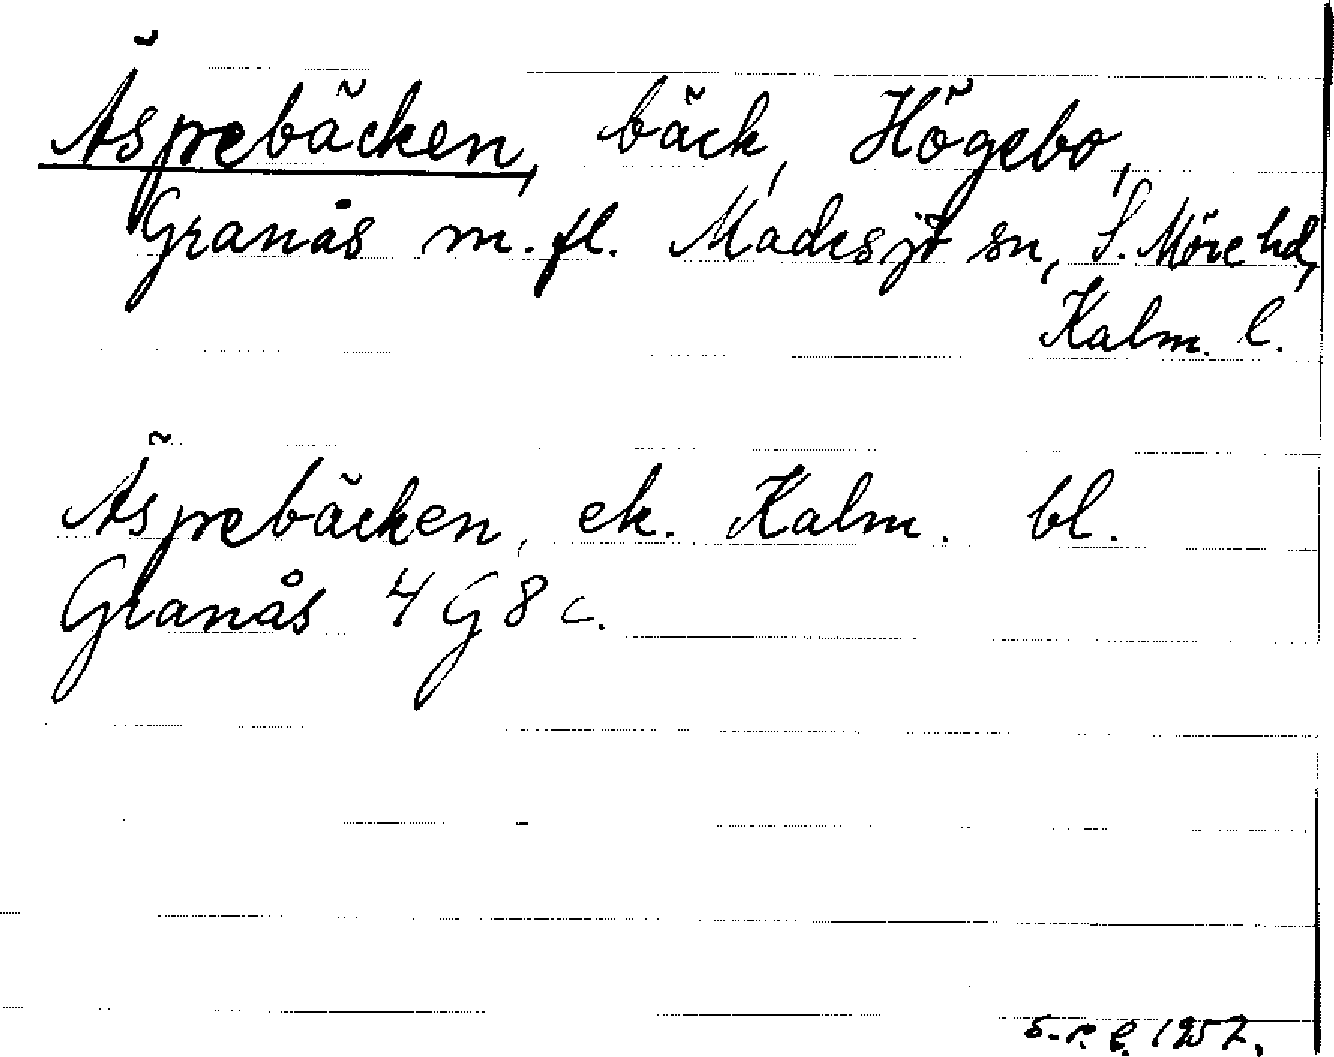 Äsprebäcken, bäck, Högebo,
Granås m.fl. Madesjö sn, S. Möre hd,
Kalm. l.
Äsprebäcken, ek. Kalm. bl.
Granås 4 G 8 c.
1957.